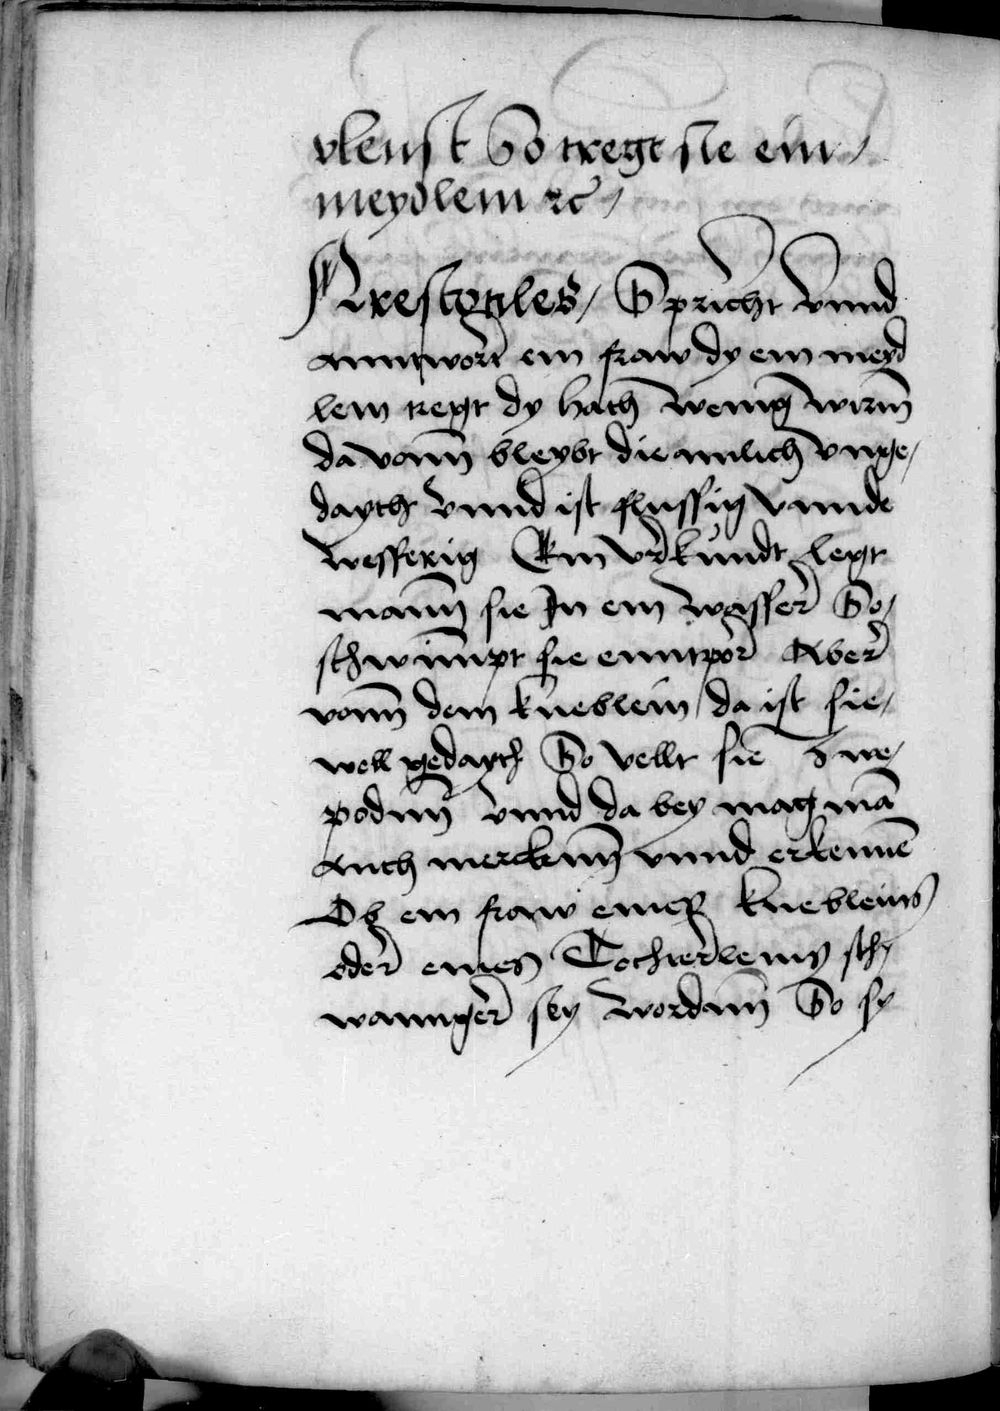 vleust So tregt sie ein /
meydlein rc /
Arestotiles / Spricht vnnd
anntwort ein fraw dy ein meyd
lein tregt dy hath wenig wirm
da vonn bleybt die milich vnge /
dayth vnnd ist flussig vnnde
wesserig Ein vrkundt legt
mann sie In ein wasser So /
schwimpt sie enntpor Aber
vonn dem kneblein / da ist sie /
woll gedayth So vellt sie zwe /
podnn vnnd da bey mag mā
auch mercknn vnnd erkennē
Ob ein fraw eineß knebleins
oder eines Tochterleins sch /
wannger sey wordnn So sy